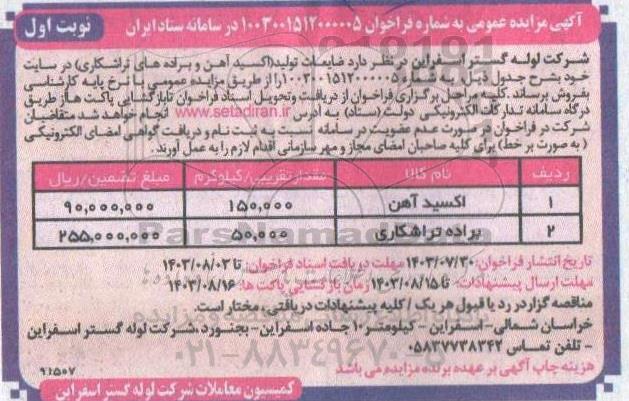 آگهی مزایده عمومی به شماره فراخوان ۱۰۰۳۰۰۱۵۱۲۰۰۰۰۰۵ در سامانه ستاد ایران
نوبت اول
شرکت لوله گستر اسفراین در نظر دارد ضایعات تولید(اکسید آهن و براده های تراشکاری) در سایت
خود بشرح جدول ذیل به شماره ۱۰۰۳۰۰۱۵۱۲۰۰۰۰۰۵ را از طریق مزایده عمومی با نرخ پایه کارشناسی
بفروش برساند .کلیه مراحل برگزاری فراخوان از دریافت و تحویل اسناد فراخوان تا بازگشایی پاکت ها از طریق
درگاه سامانه تدارکات الکترونیکی دولت (ستاد) به آدرس www.setadiran.ir انجام خواهد شد متقاضیان
شرکت در فراخوان در صورت عدم عضویت در سامانه نسبت به ثبت نام و دریافت گواهی امضای الکترونیکی
( به صورت بر خط) برای کلیه صاحبان امضای مجاز و مهر سازمانی اقدام لازم را به عمل آورند .
ردیف نام کالا مقدار تقریبی/کیلوگرم مبلغ تضمین/ریال
۱ اکسید آهن ۱۵۰,۰۰۰ ۹۰,۰۰۰,۰۰۰
۲ براده تراشکاری ۵۰,۰۰۰ ۲۵۵,۰۰۰,۰۰۰
تاریخ انتشار فراخوان: ۱۴۰۳/۰۷/۳۰ مهلت دریافت اسناد فراخوان: تا ۱۴۰۳/۰۸/۰۳
مهلت ارسال پیشنهادات: تا ۱۴۰۳/۰۸/۱۵ زمان بازگشایی پاکت ها: ۱۴۰۳/۰۸/۱۶
مناقصه گزار در رد یا قبول هر یک / کلیه پیشنهادات دریافتی، مختار است.
خراسان شمالی- اسفراین - کیلومتر ۱۰ جاده اسفراین- بجنورد ،شرکت لوله گستر اسفراین
- تلفن تماس ۰۵۸۳۷۷۳۸۳۴۲
هزینه چاپ آگهی بر عهده برنده مزایده می باشد
۹۶۵۰۷
کمیسیون معاملات شرکت لوله گستر اسفراین
ParsNamadData
۰۲۱-۸۸۳۴۹۶۷۰-۵